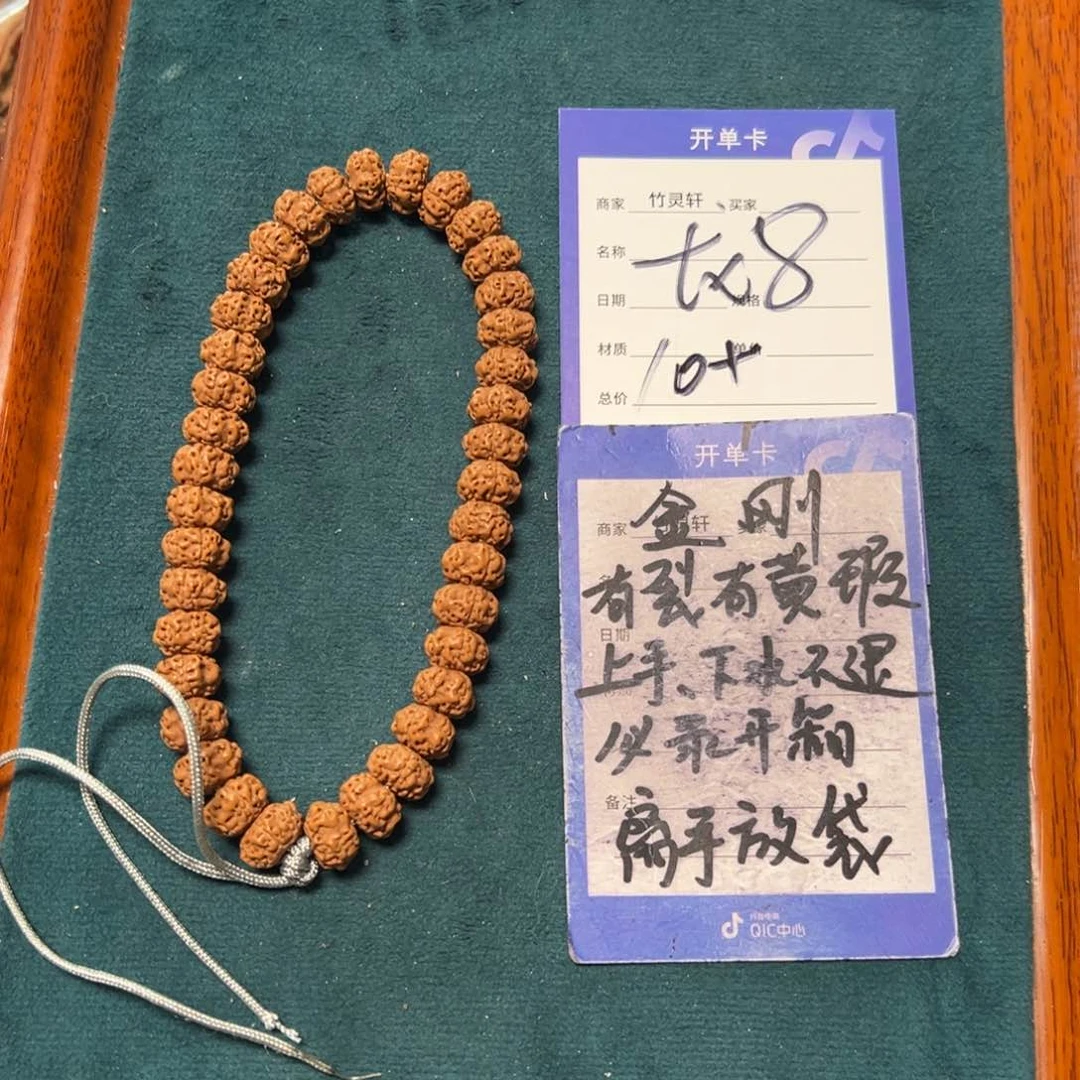 开单卡
商家 竹灵轩 买家
名称
tx8
日期 规格
材质 10+ 单价
总价
开单卡
商家 金刚
有裂有黄瑕
日期
上手、下水不退
必录开箱
备注
离手放袋
抖音电商
QIC中心